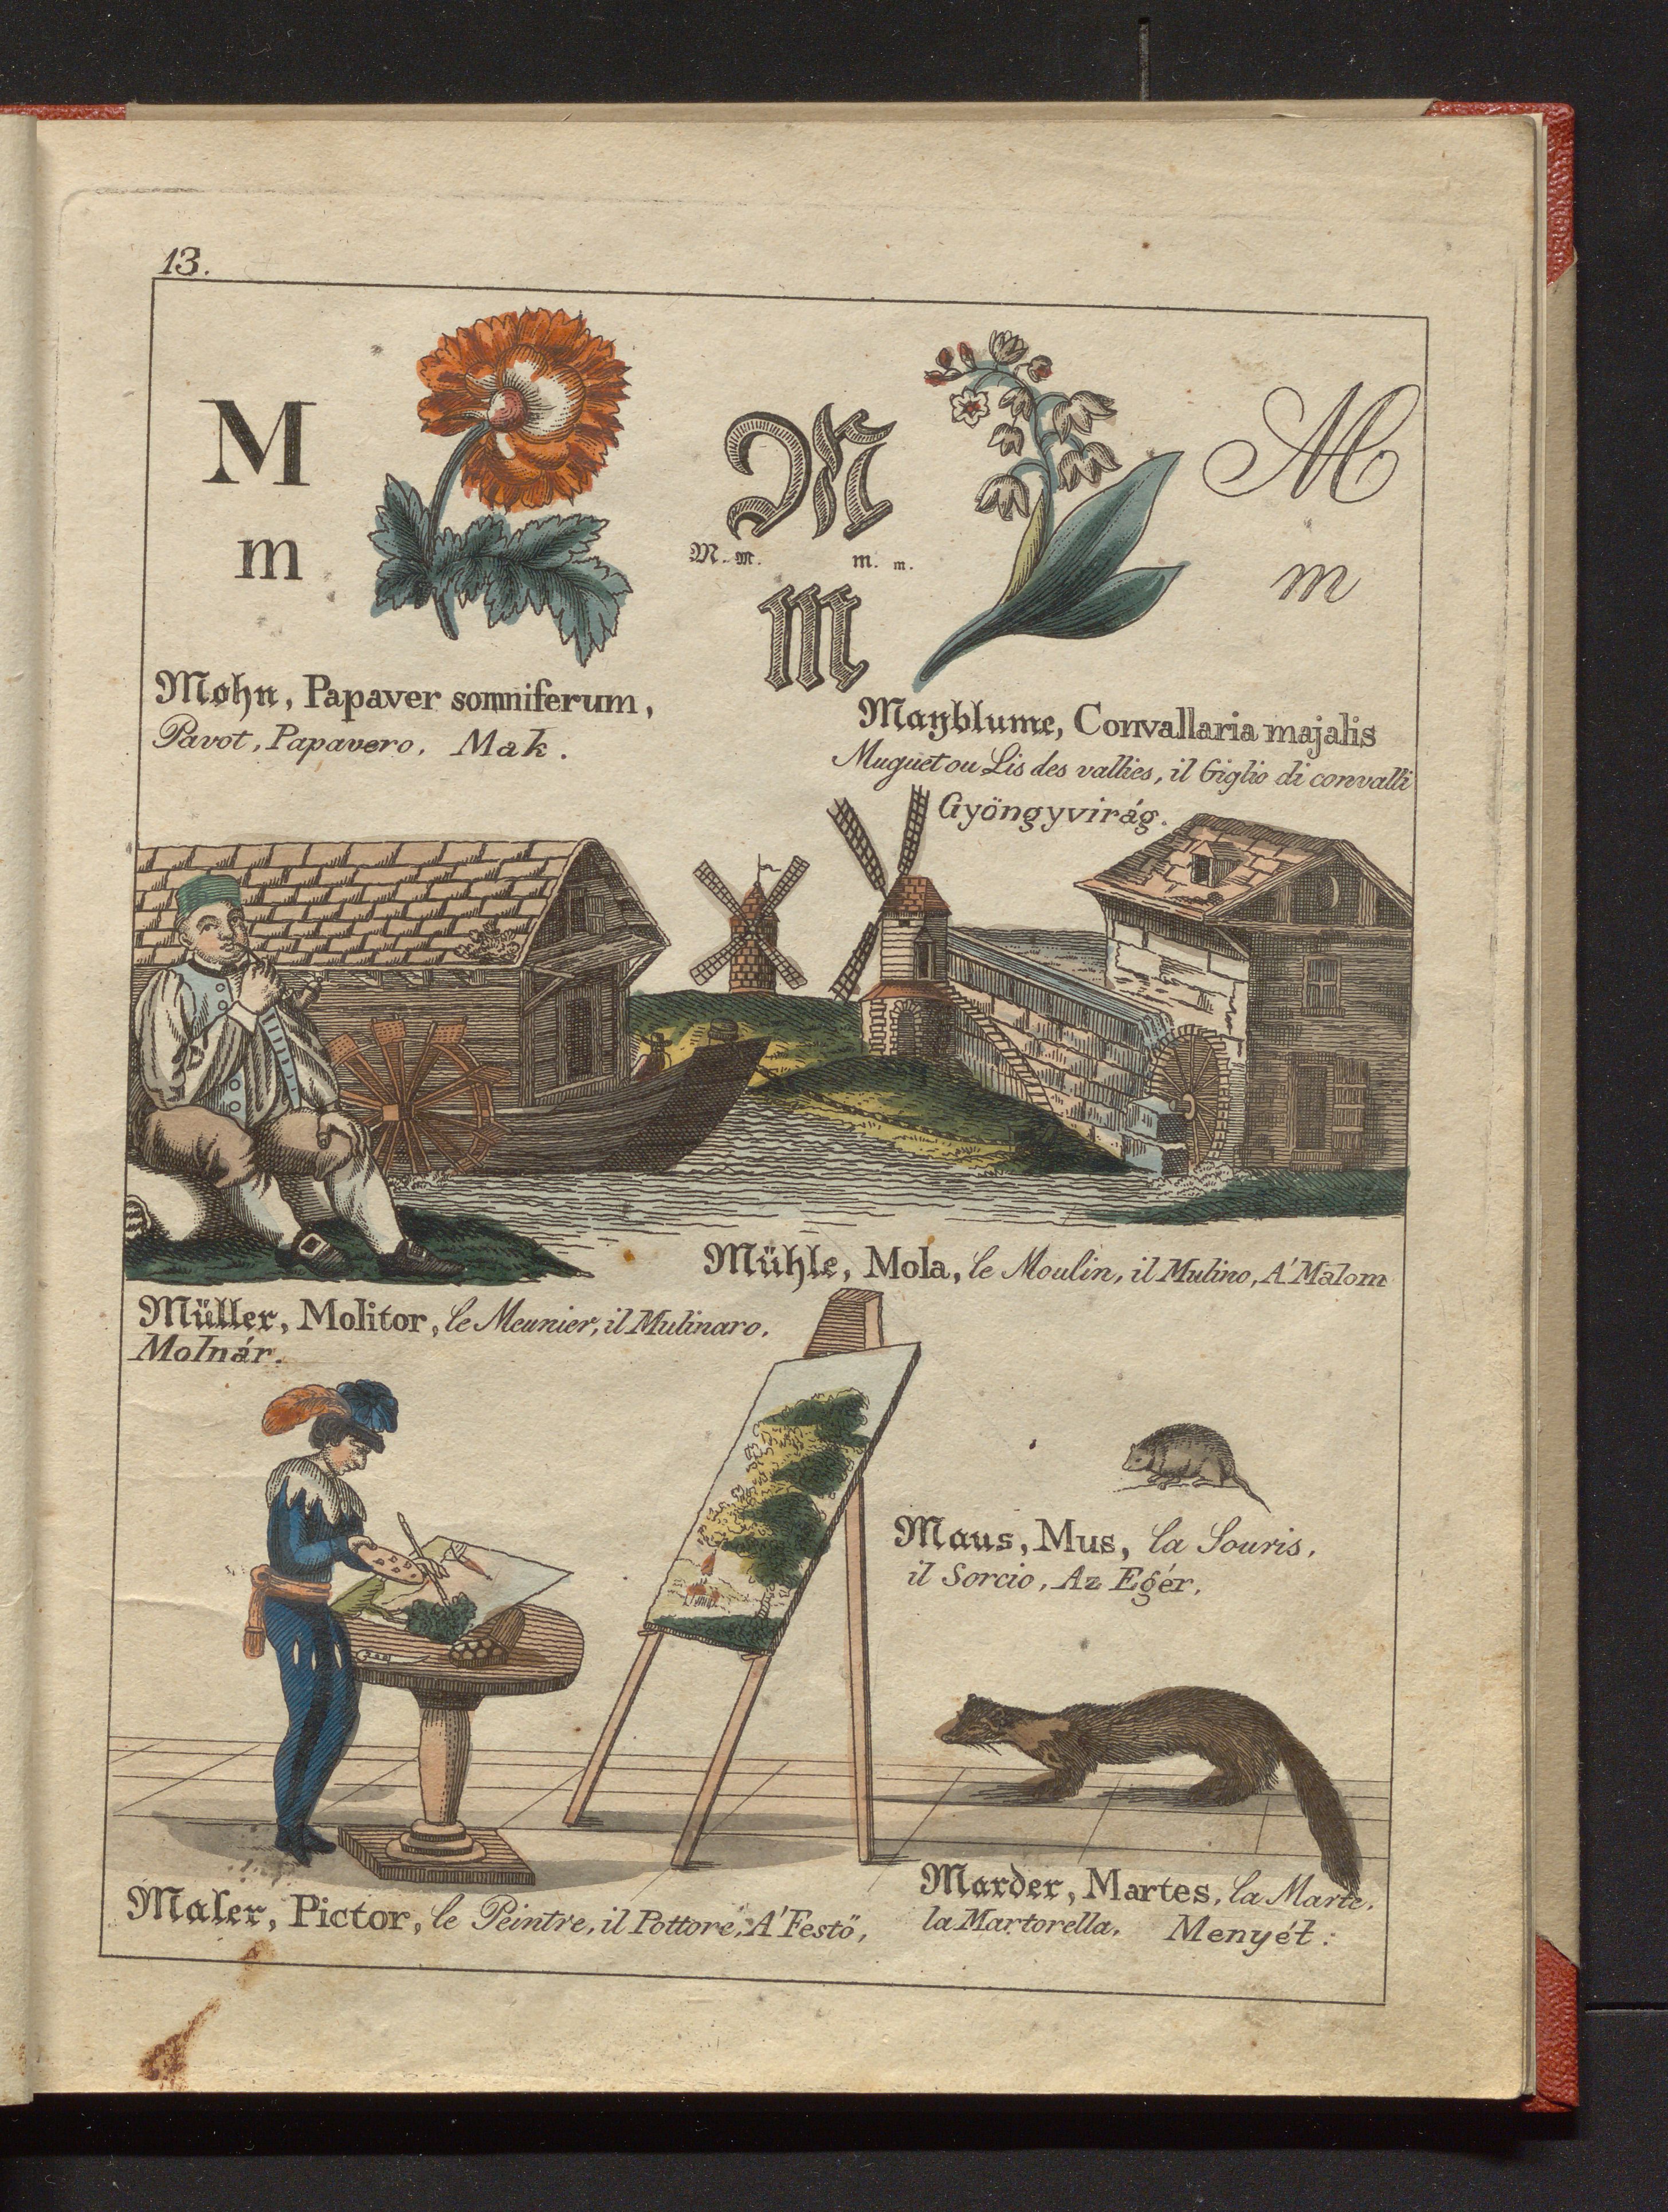 13.
M
m
M
M. M. m. m.
m
M
m
Mohn, Papaver somniferum,
Pavot, Papavero. Mak.
Mayblume, Convallaria majalis
Muguet ou Lis des vallies, il Giglio di convalli
Gyöngyvirág.
Mühle, Mola, le Moulin, il Mulino, A' Malom
Müller, Molitor, le Meunier, il Mulinaro.
Molnár.
Maus, Mus, la Souris,
il Sorcio, Az Egér,
Maler, Pictor, le Peintre, il Pottore, A' Festö,
Marder, Martes, la Marte,
la Martorella, Menyét: